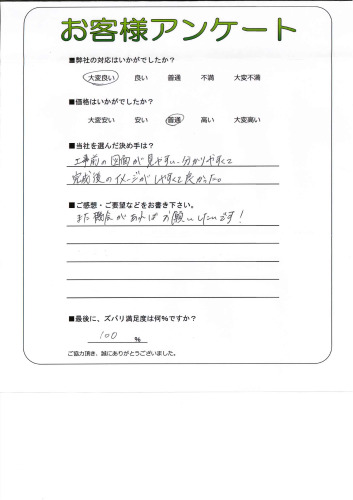 お客様アンケート
■弊社の対応はいかがでしたか?
大変良い 良い 普通 不満 大変不満
■価格はいかがでしたか?
大変安い 安い 普通 高い 大変高い
■当社を選んだ決め手は?
工事前の図面が見やすい、分かりやすくて
完成後のイメージがしやすくて良かった。
■ご感想・ご要望などをお書き下さい。
また機会があればお願いしたいです!
■最後に、ズバリ満足度は何%ですか?
100 %
ご協力頂き、誠にありがとうございました。